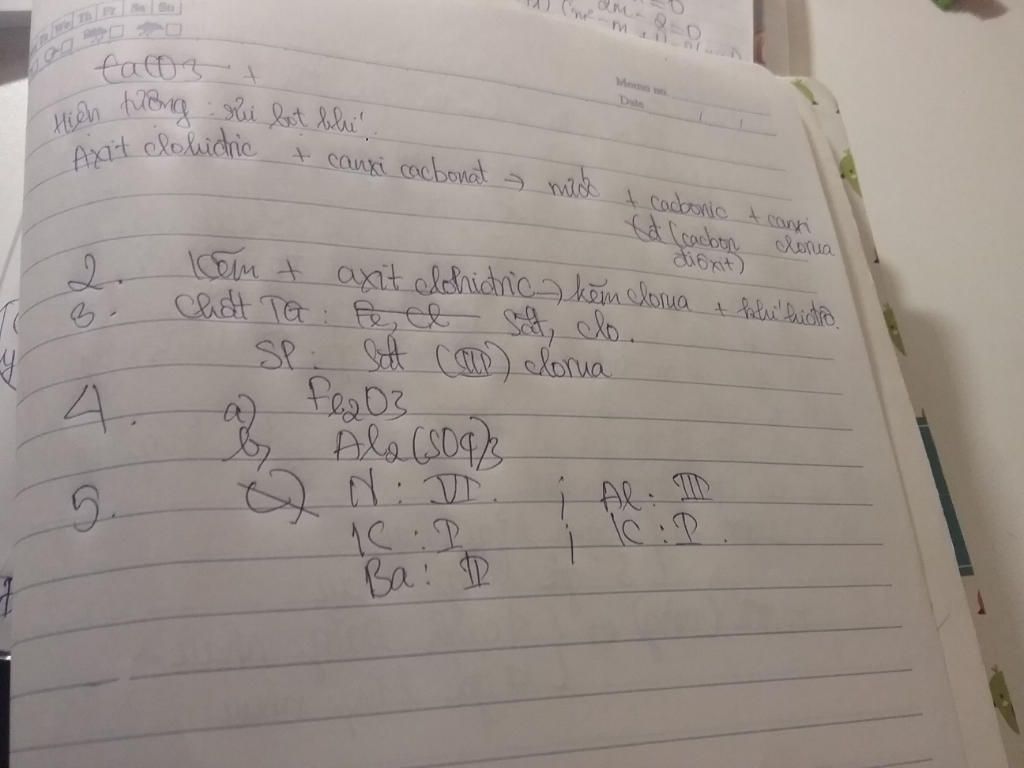 Th Fr Sa Su
2m - 8 = 0
CaCO3 +
Memo no.
Date / /
Hiện tượng: sủi bọt khí.
Axit clohidric + canxi cacbonat → nước + cacbonic + canxi
(cacbon clorua
đioxit)
2. Kẽm + axit clohidric → kẽm clorua + khí hidro.
3. Chất TG: Fe, Cl Sắt, clo.
SP: Sắt (III) clorua
4. a) Fe2O3
b, Al2(SO4)3
5. N: VI ; Al: III
K: I ; K: I.
Ba: II